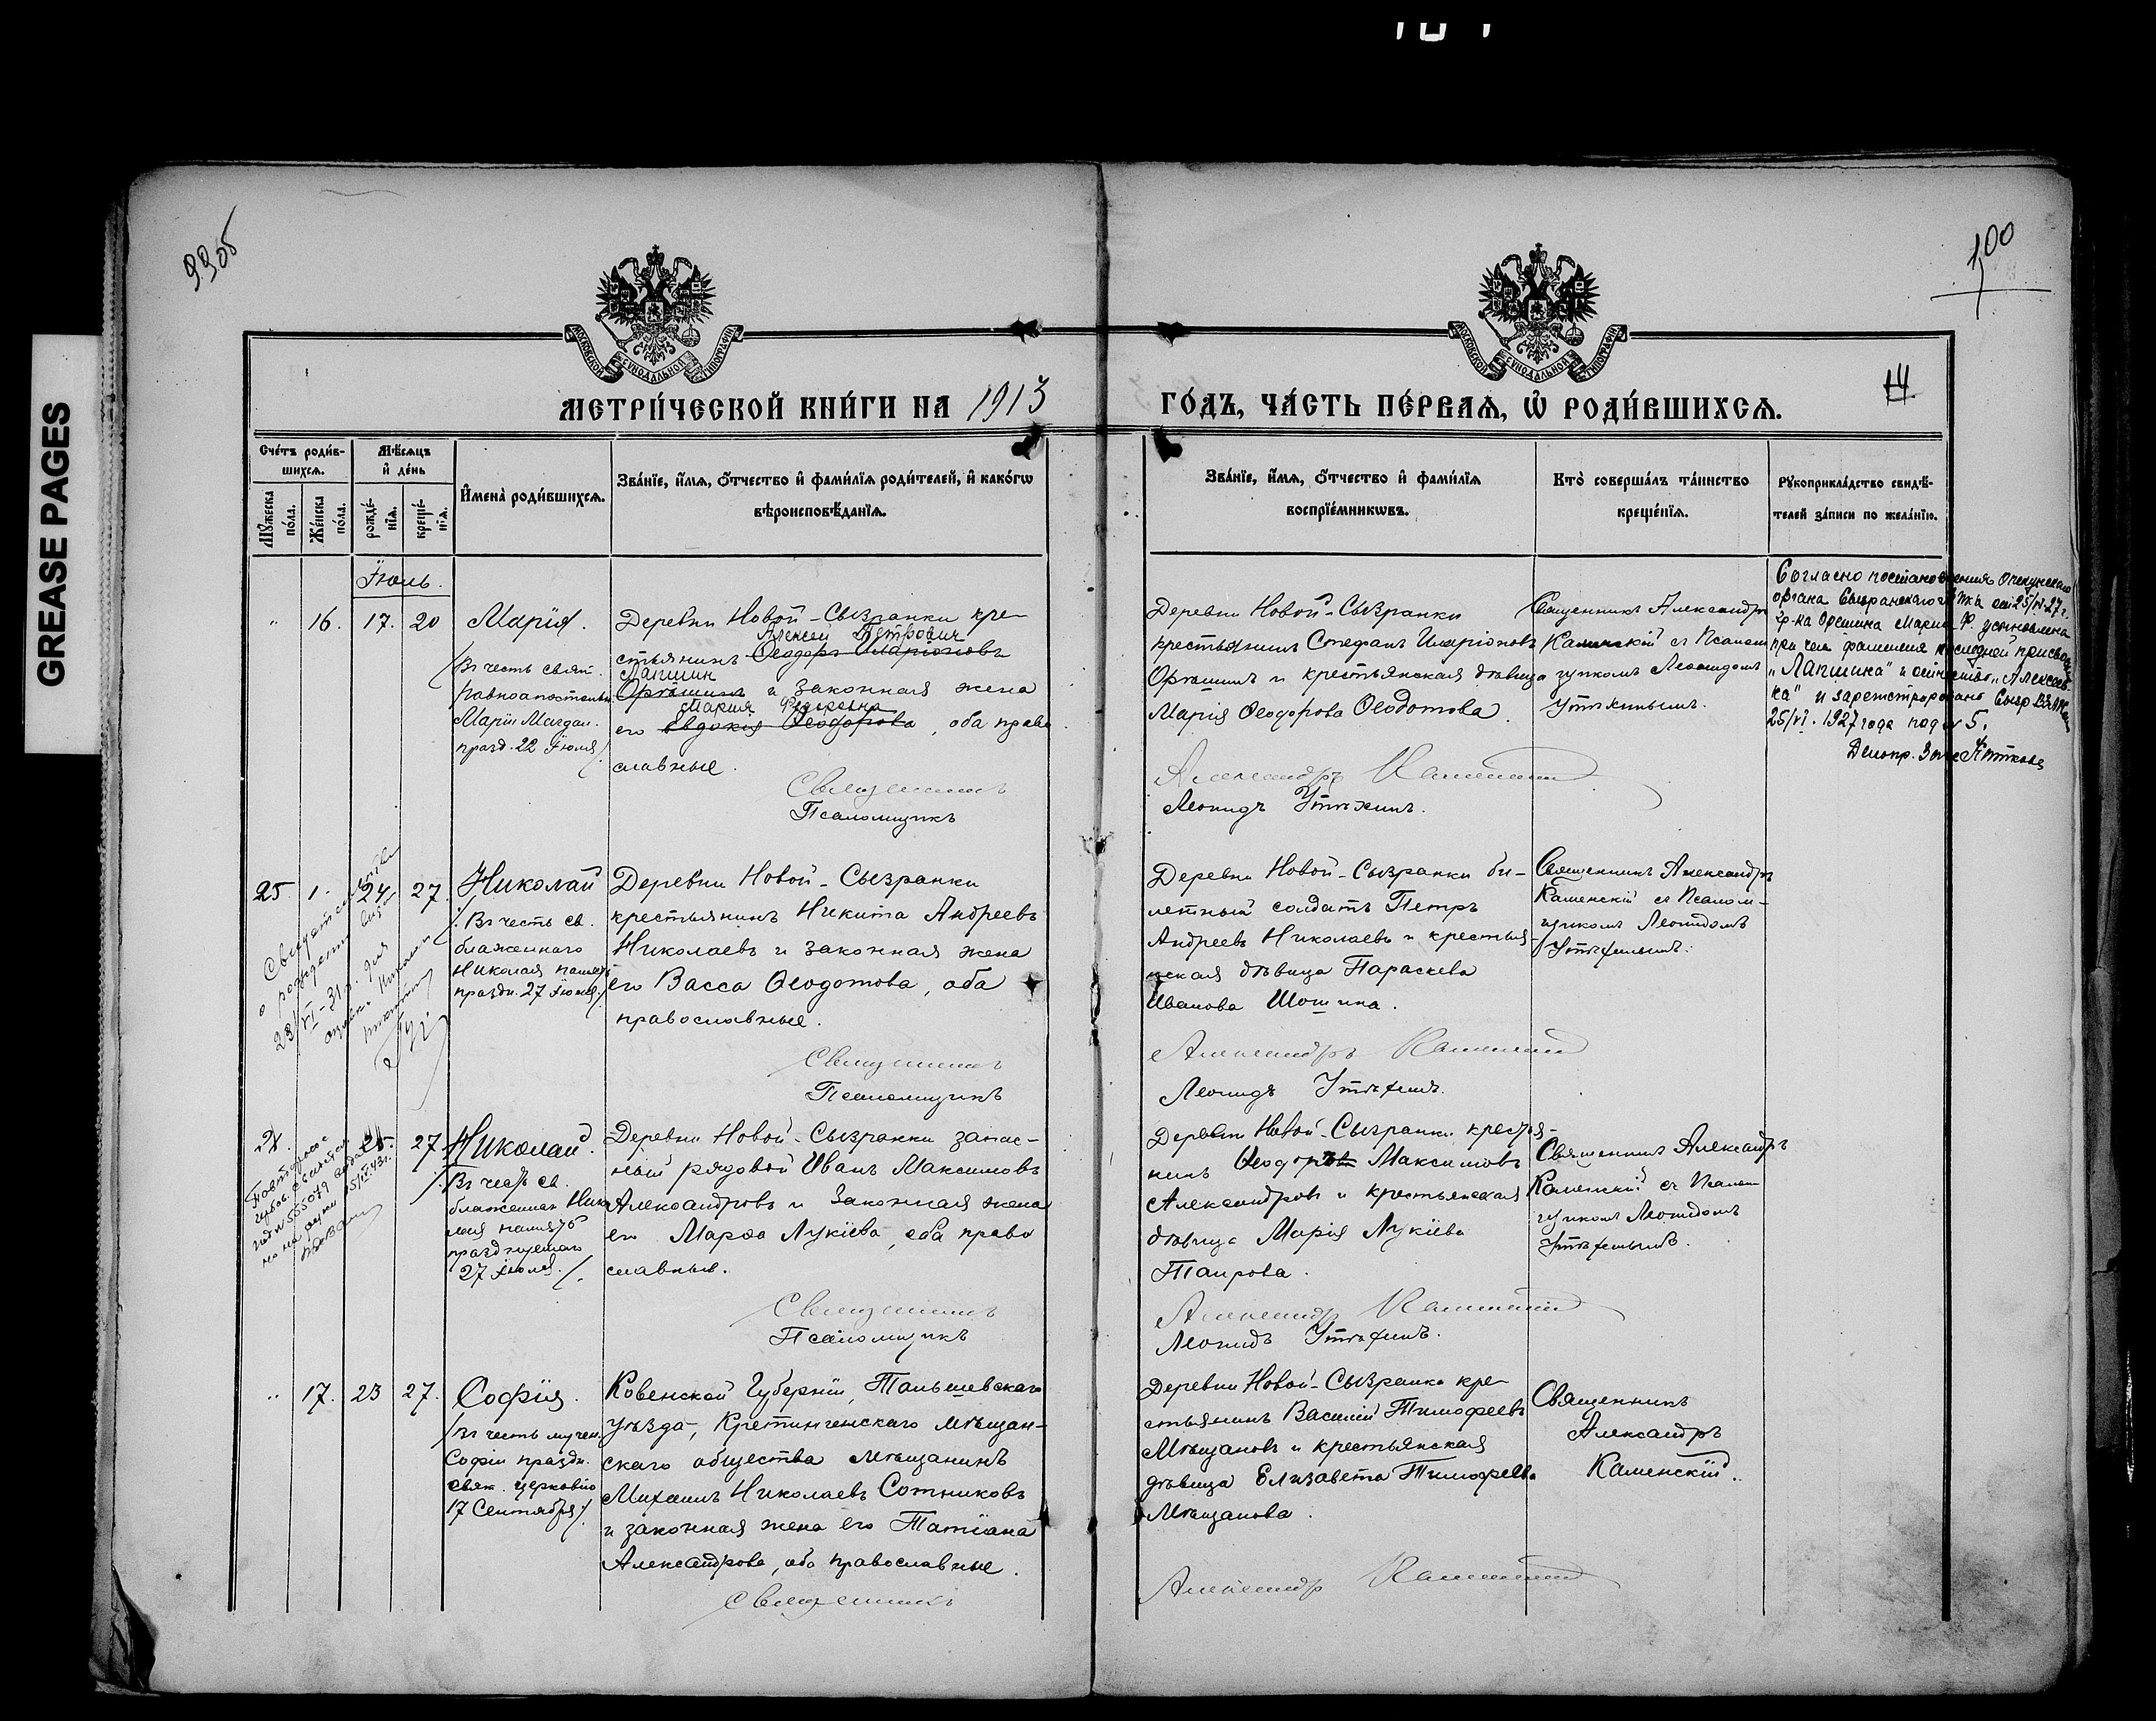 GREASE PAGES
99об
100
МОСКОВСКОЙ СѴНОДАЛЬНОЙ ТИПОГРАФІИ
МОСКОВСКОЙ СѴНОДАЛЬНОЙ ТИПОГРАФІИ
14
МЕТРИ́ЧЕСКОЙ КНИ́ГИ НА 1913
ГО́ДЪ, ЧА́СТЬ ПЕ́РВАѦ, Ѡ҆ РОДИ́ВШИХСѦ.
Сче́тъ роди́в-
шихсѧ.
Мꙋ́жеска по́ла.
Же́нска по́ла.
Мѣ́сѧцъ и҆ де́нь
рожде́-
нїѧ.
креще́-
нїѧ.
И҆мена̀ роди́вшихсѧ.
Зва́нїе, и҆́мѧ, ѻ҆́тчество и҆ фами́лїѧ роди́телей, и҆ како́гѡ
вѣроисповѣ́данїѧ.
Зва́нїе, и҆́мѧ, ѻ҆́тчество и҆ фами́лїѧ
воспрїе́мникѡвъ.
Кто̀ соверша́лъ та́инство
креще́нїѧ.
Рꙋкоприкла́дство свидѣ́-
телей за́писи по жела́нїю.
Іюль.
" 16. 17. 20
Марія.
/Въ честь свят.
равноапостольн.
Маріи Магдал.
празд. 22 Іюля/
Деревни Новой-Сызранки кре-
Алексей Петрович
стьянинъ Ѳеодоръ Иларіоновъ
Лапшин
и законная жена
Мария Федоровна
его Евдокія Ѳеодорова, оба право
славные.
Священникъ
Псаломщикъ
Деревни Новой-Сызранки
крестьянинъ Стефанъ Иларіоновъ
и крестьянская дѣвица
Марія Ѳеодорова Ѳеодотова.
Александръ Каменскій
Леонидъ Утѣхинъ.
Священникъ Александръ
Каменскій съ Псалом
щикомъ Леонидомъ
Утѣхинымъ.
Согласно постановления Опекунского
органа Сызранского от 25/
Мария Ф. усыновлена
при чем фамилия последней присвоена
"Лапшина" и отчество "Алексеев-
на" и зарегистрировано Сызр.
25/VI. 1927 года под № 5.
Делопр.
25 1. 24 27.
Николай
/Въ честь св.
блаженнаго
Николая
праздн. 27 Іюля/
о рождении
23/VI-31 г. для
Деревни Новой-Сызранки
крестьянинъ Никита Андреевъ
Николаевъ и законная жена
его Васса Ѳеодотова, оба
православные.
Священникъ
Псаломщикъ
Деревни Новой-Сызранки би-
летный солдатъ Петръ
Андреевъ Николаевъ и крестьян-
ская дѣвица Параскева
Иванова Шошина.
Александръ Каменскій
Леонидъ Утѣхинъ.
Священникъ Александръ
Каменскій съ Псалом-
щикомъ Леонидомъ
Утѣхинымъ.
25. 27
Николай.
/Въ честь св.
блаженнаго Нико
лая
празднуемаго
27 Іюля./
Повторное
№ 555079
Деревни Новой-Сызранки запас-
ный рядовой Иванъ Максимовъ
Александровъ и законная жена
его Марѳа Лукіева, оба право
славные.
Священникъ
Псаломщикъ
Деревни Новой-Сызранки крестья-
нинъ Ѳеодоръ Максимовъ
Александровъ и крестьянская
дѣвица Марія Лукіева
Таирова.
Александръ Каменскій
Леонидъ Утѣхинъ.
Священникъ Александръ
Каменскій съ Псалом
щикомъ Леонидомъ
Утѣхинымъ.
" 17. 23 27.
Софія.
/въ честь мучен.
Софіи праздн.
церковію
17 Сентября/.
Ковенской Губерніи, Тельшевскаго
уѣзда, Кретингенскаго мѣщан-
скаго общества мѣщанинъ
Михаилъ Николаевъ Сотниковъ
и законная жена его Татіана
Александрова, оба православные.
Священникъ
Деревни Новой-Сызранки кре-
стьянинъ Василій Тимофеевъ
Мѣщановъ и крестьянская
дѣвица Елизавета Тимофеева
Мѣщанова.
Александръ Каменскій
Священникъ
Александръ
Каменскій.